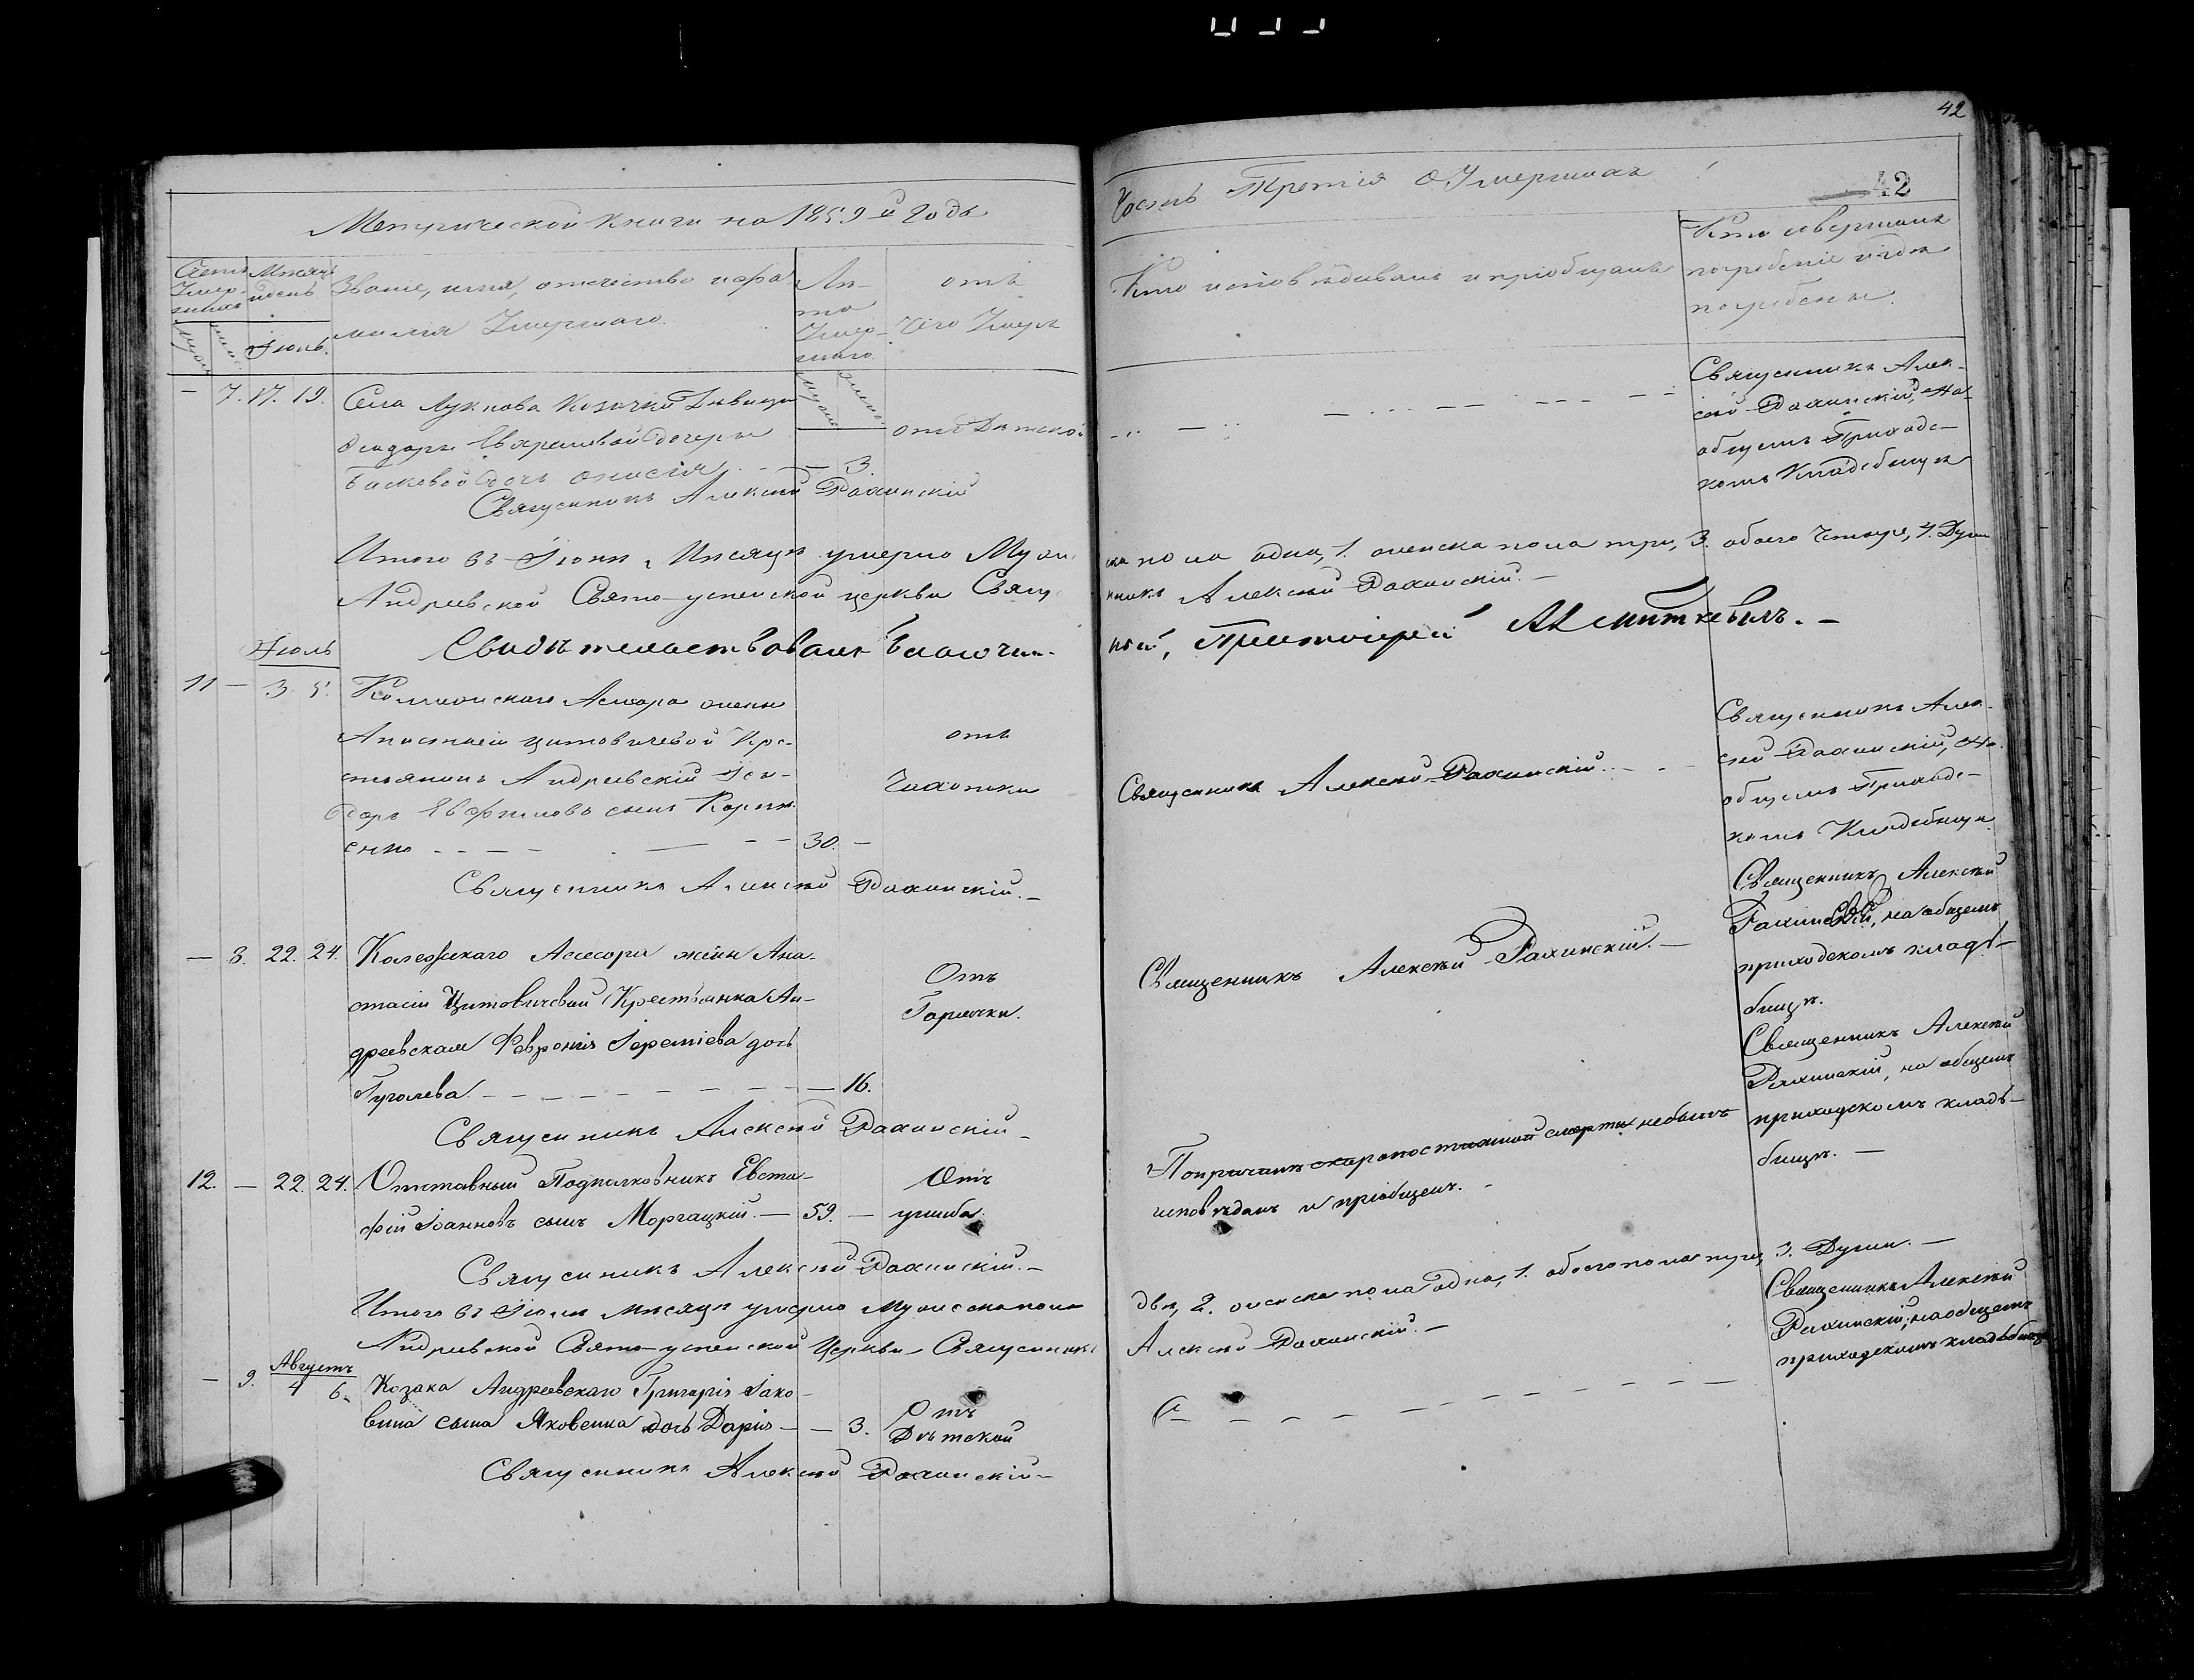 42
Метрической Книги на 1859й Годъ
Часть Третія О Умершихъ
42
Счетъ Умер-шихъ
Мѣсяцъ и день
Званіе, имя, отчество и фа-
милія Умершаго.
Лѣ-
та
Умер-
шаго.
отъ
Чего Умеръ
Кто исповѣдывалъ и пріобщалъ
Кто совершалъ
погребеніе и гдѣ
погребены.
Іюнь.
— 7. 17. 19. Села Лукнова Козачки Дѣвицы
Феодоры дочери
дочь — 3.
отъ Дѣтской
Священникъ Алек-
сѣй Рахинскій, на
общемъ Приходс-
комъ Кладбищѣ
Священникъ Алексѣй Рахинскій
Итого въ Іюнѣ Мѣсяцѣ умерло Муже-
ска пола одна, 1. женска пола три, 3. обоего Четыре, 4. Души
Андреевской Свято-успенской церкви Свящ-
нникъ Алексѣй Рахинскій. —
Свидѣтельствовалъ Благочин-
ный, Протоіерей —
Іюль
11 — 3 5. Коллежскаго Асесора жены
Анастасіи Цитовичевой Кре-
стьянинъ Андреевскій Іси-
доръ сынъ
30. —
отъ
Чахотки
Священникъ Алексѣй Рахинскій. —
Священникъ Алек-
сѣй Рахинскій, на
общемъ Приходс-
комъ Кладбищѣ
Священникъ Алексѣй Рахинскій. —
— 8. 22. 24. Колежскаго Асесора жены Ана-
стасіи Цитовичевой Крестьянка Ан-
дреевская Февронія Іереміева дочь
Гуголева. — — 16.
Отъ
Горячки.
Священникъ Алексѣй Рахинскій. —
Священникъ Алексѣй
Рахинскій, на общемъ
приходскомъ кладъ-
бищѣ.
Священникъ Алексѣй Рахинскій —
12. — 22. 24. Отставный Подполковникъ Евста-
фій Іоанновъ сынъ Моргацкій. — 59. —
Отъ
ушиба.
По причинѣ скоропостижной смерти небылъ
исповѣданъ и пріобщенъ. —
Священникъ Алексѣй
Рахинскій, на общемъ
приходскомъ кладъ-
бищѣ. —
Священникъ Алексѣй Рахинскій. —
Итого въ Іюлѣ мѣсяцѣ умерло Мужеска пола
двѣ, 2. женска пола одна, 1. обоего пола три, 3. Души. —
Андреевской Свято-успенской Церкви Священникъ
Алексѣй Рахинскій. —
Августъ
— 9. 4 6. Козака Андреевскаго Григорія Іако-
вина сына Яковенка дочь Дарія — — 3.
Отъ
Дѣтской
Священникъ Алексѣй
Рахинскій, на общемъ
приходскомъ кладъбищѣ
Священникъ Алексѣй Рахинскій —